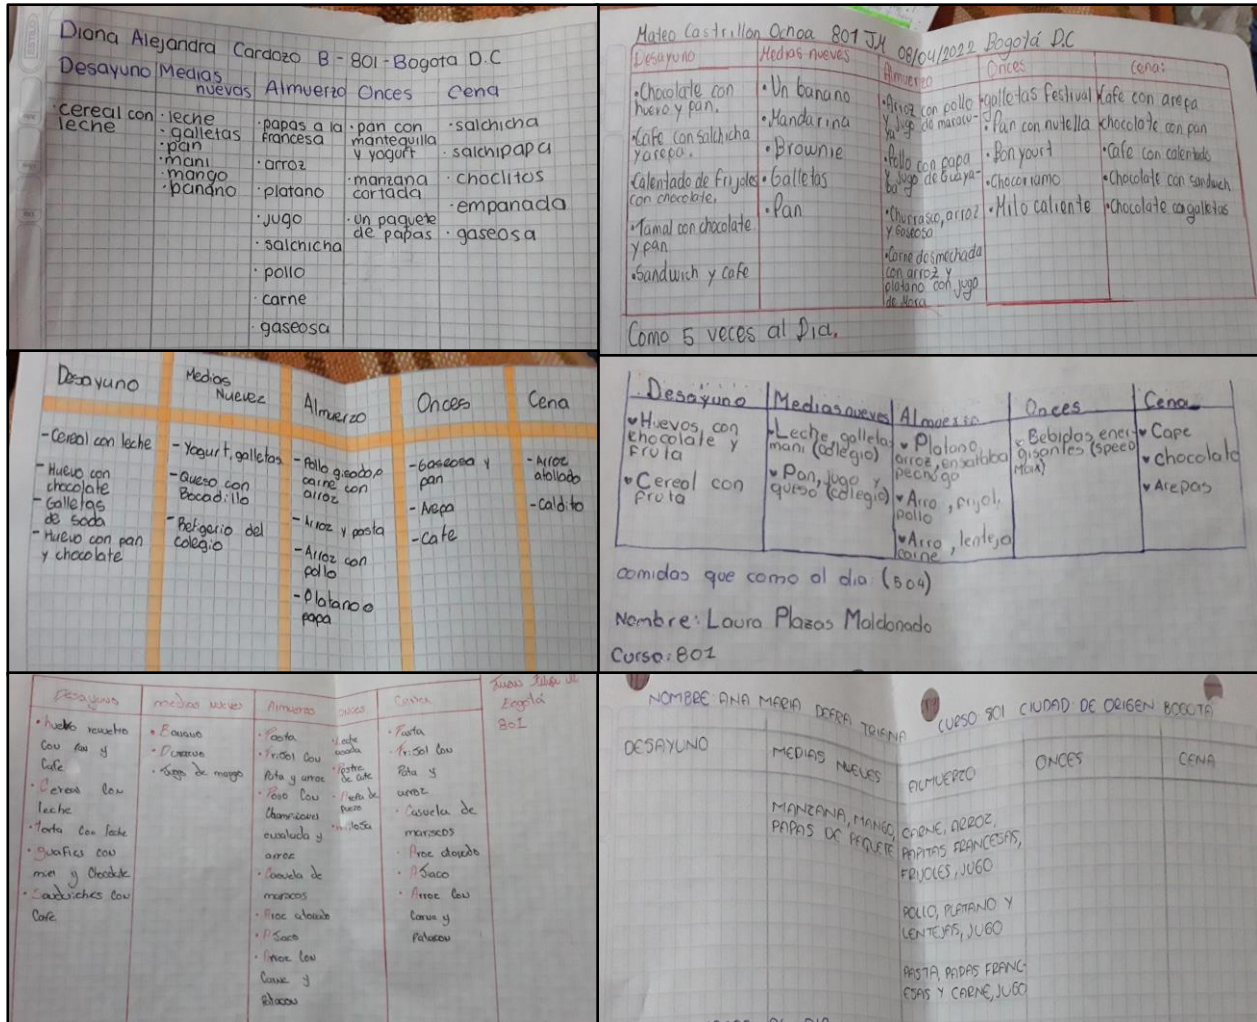 Diana Alejandra Cardozo B - 801 - Bogota D.C
Desayuno
cereal con
leche
Medias
nuevas
· leche
· galletas
· pan
· mani
· mango
· banano
Almuerzo
· papas a la
francesa
· arroz
· platano
· jugo
· salchicha
· pollo
· carne
· gaseosa
Onces
· pan con
mantequilla
y yogurt
· manzana
cortada
· un paquete
de papas
Cena
· salchicha
· salchipapa
· choclitos
· empanada
· gaseosa
Mateo Castrillon Ochoa 801 JM 08/04/2022 Bogotá D.C
Desayuno
• Chocolate con
huevo y pan.
• Cafe con salchicha
y arepa.
Calentado de frijoles
con chocolate.
• Tamal con chocolate
y pan
• Sandwich y cafe
Medias nueves
• Un banano
• Mandarina
• Brownie
• Galletas
• Pan
Almuerzo
• Arroz con pollo
y jugo de maracu-
ya
• Pollo con papa
y jugo de Guaya-
ba
• Churrasco, arroz
y Gaseosa
• Carne desmechada
con arroz y
platano con jugo
de Mora
Onces
• galletas festival
• Pan con nutella
• Bonyourt
• Chocoramo
• Milo caliente
Cena:
Cafe con arepa
chocolate con pan
• Cafe con calentado
• Chocolate con sandwich
• Chocolate con galletas
Como 5 veces al Dia.
Desayuno
- Cereal con leche
- Huevo con
chocolate
- Galletas
de soda
- Huevo con pan
y chocolate
Medias
Nuevez
- Yogurt, galletas
- Queso con
Bocadillo
- Refigerio del
colegio
Almuerzo
- Pollo gisado, o
carne con
arroz
- Arroz y pasta
- Arroz con
pollo
- Platano o
papa
Onces
- Gaseosa y
pan
- Arepa
- Cafe
Cena
- Arroz
atollado
- Caldito
Desayuno
Huevos, con
chocolate y
fruta
Cereal con
fruta
Medias nueves
Leche, galleta,
mani (colegio)
Pan, jugo y
queso (colegio)
Almuerzo
Platano,
arroz, ensalada
pechuga
Arro, frijol,
pollo
Arro, lenteja
carne
Onces
Bebidas, ener-
gisantes (speed
Max)
Cena
Cafe
chocolate
Arepas
comidas que como al dia: (5 o 4)
Nombre: Laura Plazas Maldonado
Curso: 801
Juan Felipe
Bogotá
801
Desayuno
• huevo revuelto
con pan y
Cafe
• Cereal con
leche
• Torta con leche
• guafles con
miel y Chocolate
• Sandwiches con
Cafe
medias nueves
• Banano
• Durazno
• Jugo de mango
Almuerzo
• Pasta
• Frisol con
Papa y arroz
• Pollo con
Champiñones
ensalada y
arroz
• Casuela de
mariscos
• Arroz atollado
• Ajiaco
• Arroz con
Carne y
Patacon
onces
• Leche
asada
• Postre
de cafe
Cena
• Pasta
• Frisol con
Papa y
arroz
• Casuela de
mariscos
• Arroz atollado
• Ajiaco
• Arroz con
Carne y
Patacon
NOMBRE: ANA MARIA TRIANA
CURSO 801 CIUDAD DE ORIGEN BOGOTA
DESAYUNO
MEDIAS NUEVES
MANZANA, MANGO,
PAPAS DE PAQUETE
ALMUERZO
CARNE, ARROZ,
PAPITAS FRANCESAS,
FRIJOLES, JUGO
POLLO, PLATANO Y
LENTEJAS, JUGO
PASTA, PAPAS FRANC-
ESAS Y CARNE, JUGO
ONCES
CENA